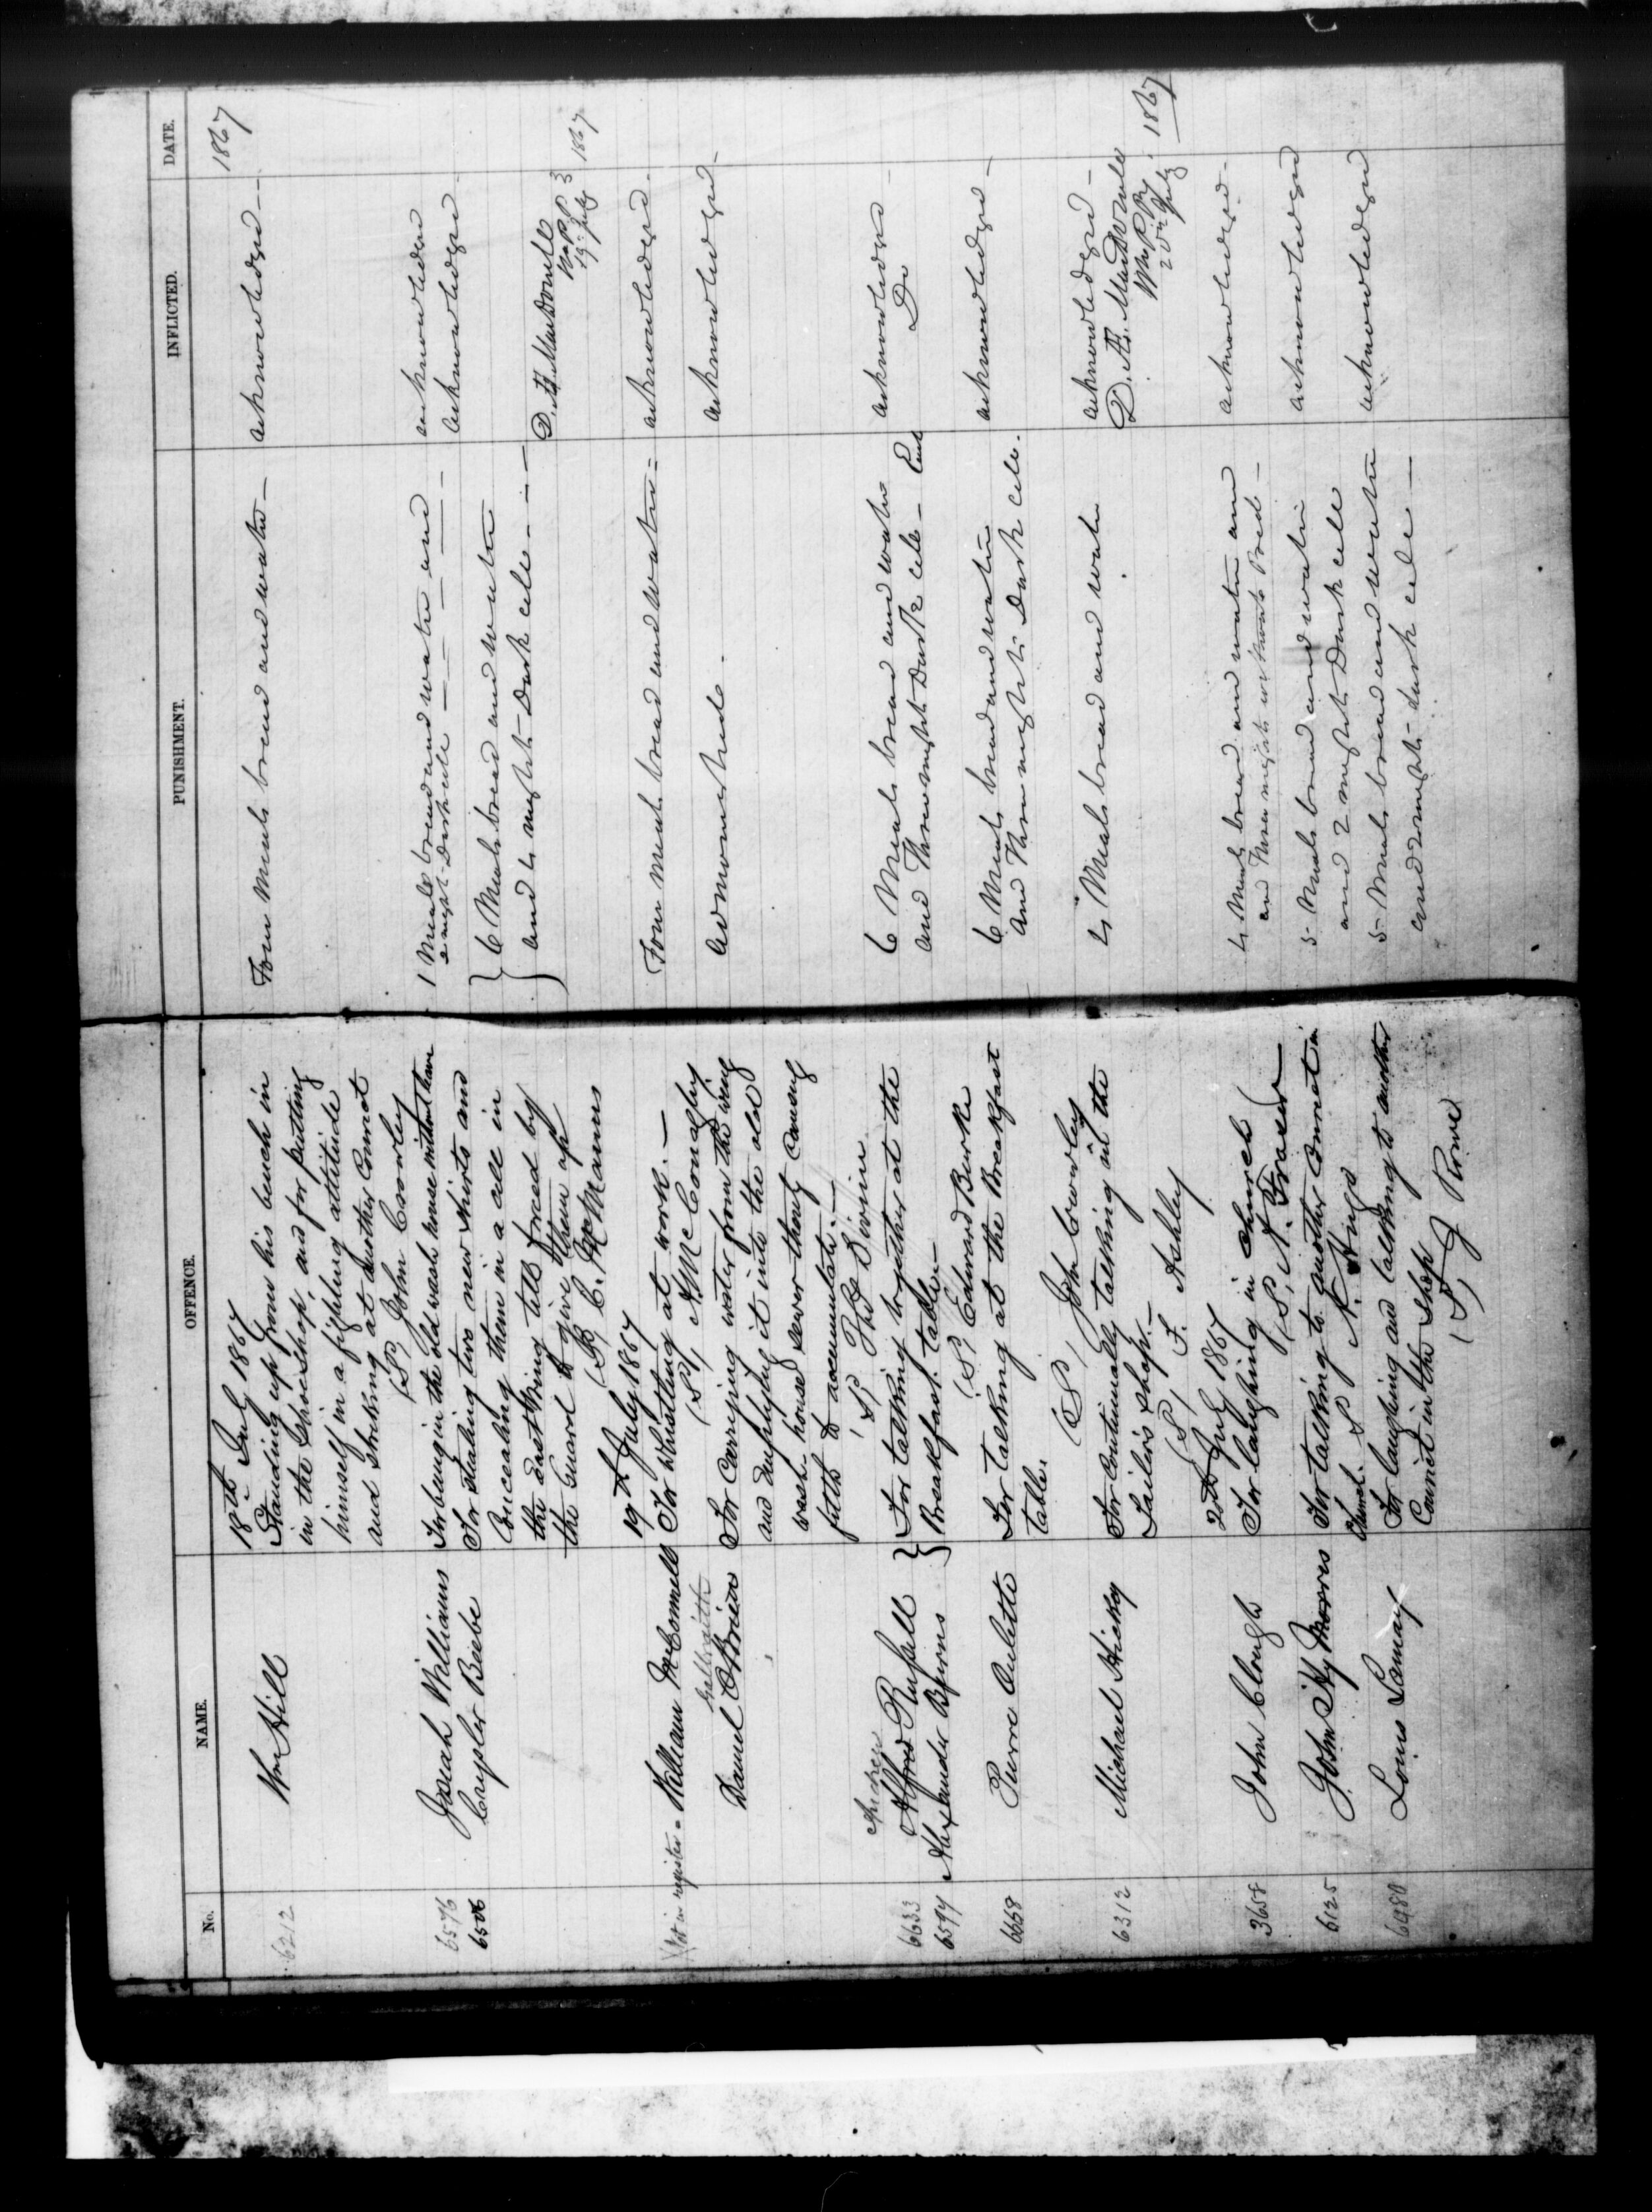 No. NAME. OFFENCE. PUNISHMENT. INFLICTED. DATE.
18th July 1867
1867
6212 Wm Hill Standing up from his bench in Four Meals bread and water — acknowledged —
in the Shoe Shop, and for putting
himself in a fighting attitude
and striking at another Convict
(S) John Crowley
6576 Josiah Williams For being in the old wash house without leave 1 Meals bread and water and acknowledged
2 night Dark cell
6506 Cuyler Beebe For stealing two new shirts and 6 Meals bread and water acknowledged
Concealing them in a cell in and 4 nights Dark cell
the East Wing till forced by D. Æ. MacDonell
the Guard to give them up W P P
(S) C. McManus 19 July 1867
19th July 1867
Not in register William McConnell For Whistling at work. — Four Meals bread and water acknowledged
(S) McConaghy
Galbraith
Daniel O'Brien For Carrying water from the wing admonished. acknowledged
and emptying it into the old
wash house sewer thereby causing
filth to accumulate. —
(S) Thos Devine
Andrew
6633 Alfred Russell For talking together at the 6 Meals bread and water acknowledged
6594 Alexander Byrns Breakfast table — and Three nights Dark cell — Each Do
(S) Edward Burke
6658 Pierre Oulette For talking at the Breakfast 6 Meals bread and water acknowledged —
table. and Three nights Dark cell.
(S) John Crowley
6312 Michael Hickey For Continually talking in the 4 Meals bread and water acknowledged —
Tailors shop. — D. Æ. MacDonell
(S) F. Ashley W P P
20th July 1867
20th July 1867
3658 John Clough For laughing in church 4 Meals bread and water and acknowledged —
(S) N. Fraser and Three nights without Bed —
6125 John Hy Morres For talking to another Convict in 5 Meals bread and water acknowledged
Church. S and 2 nights Dark cell
6480 Louis Lamay For laughing and talking to another 5 Meals bread and water acknowledged
Convict in the Shop and 2 nights dark cell —
(S) J Rowe